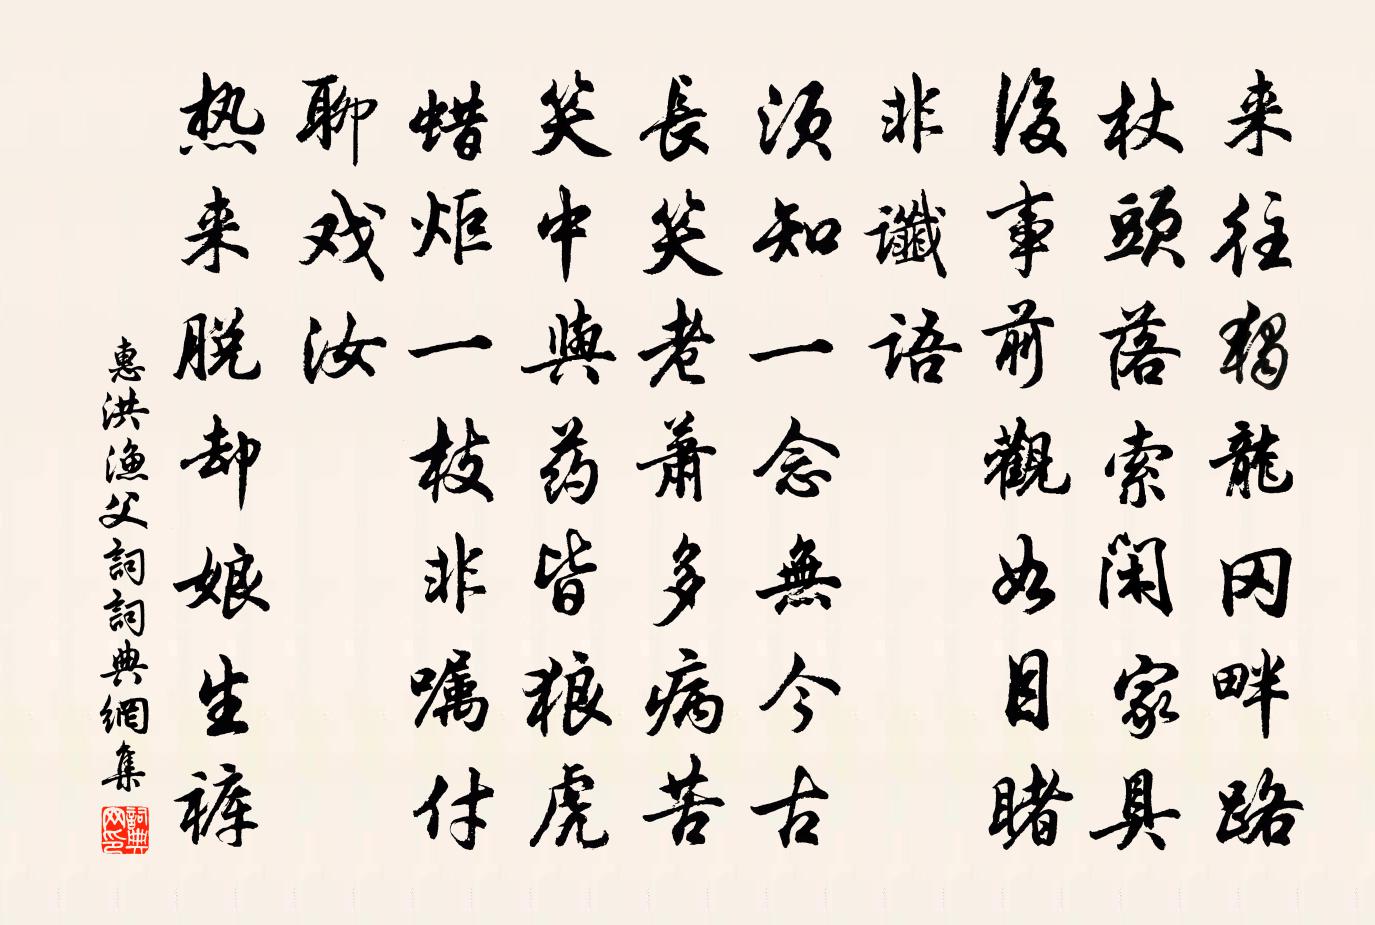 来往独龍冈畔路
杖頭落索闲家具
後事前觀如目睹
非讖語
须知一念無今古
長笑老萧多病苦
笑中與药皆狼虎
蜡炬一枝非嘱付
聊戏汝
热来脱却娘生裤
惠洪渔父詞詞典網集
詞典网印